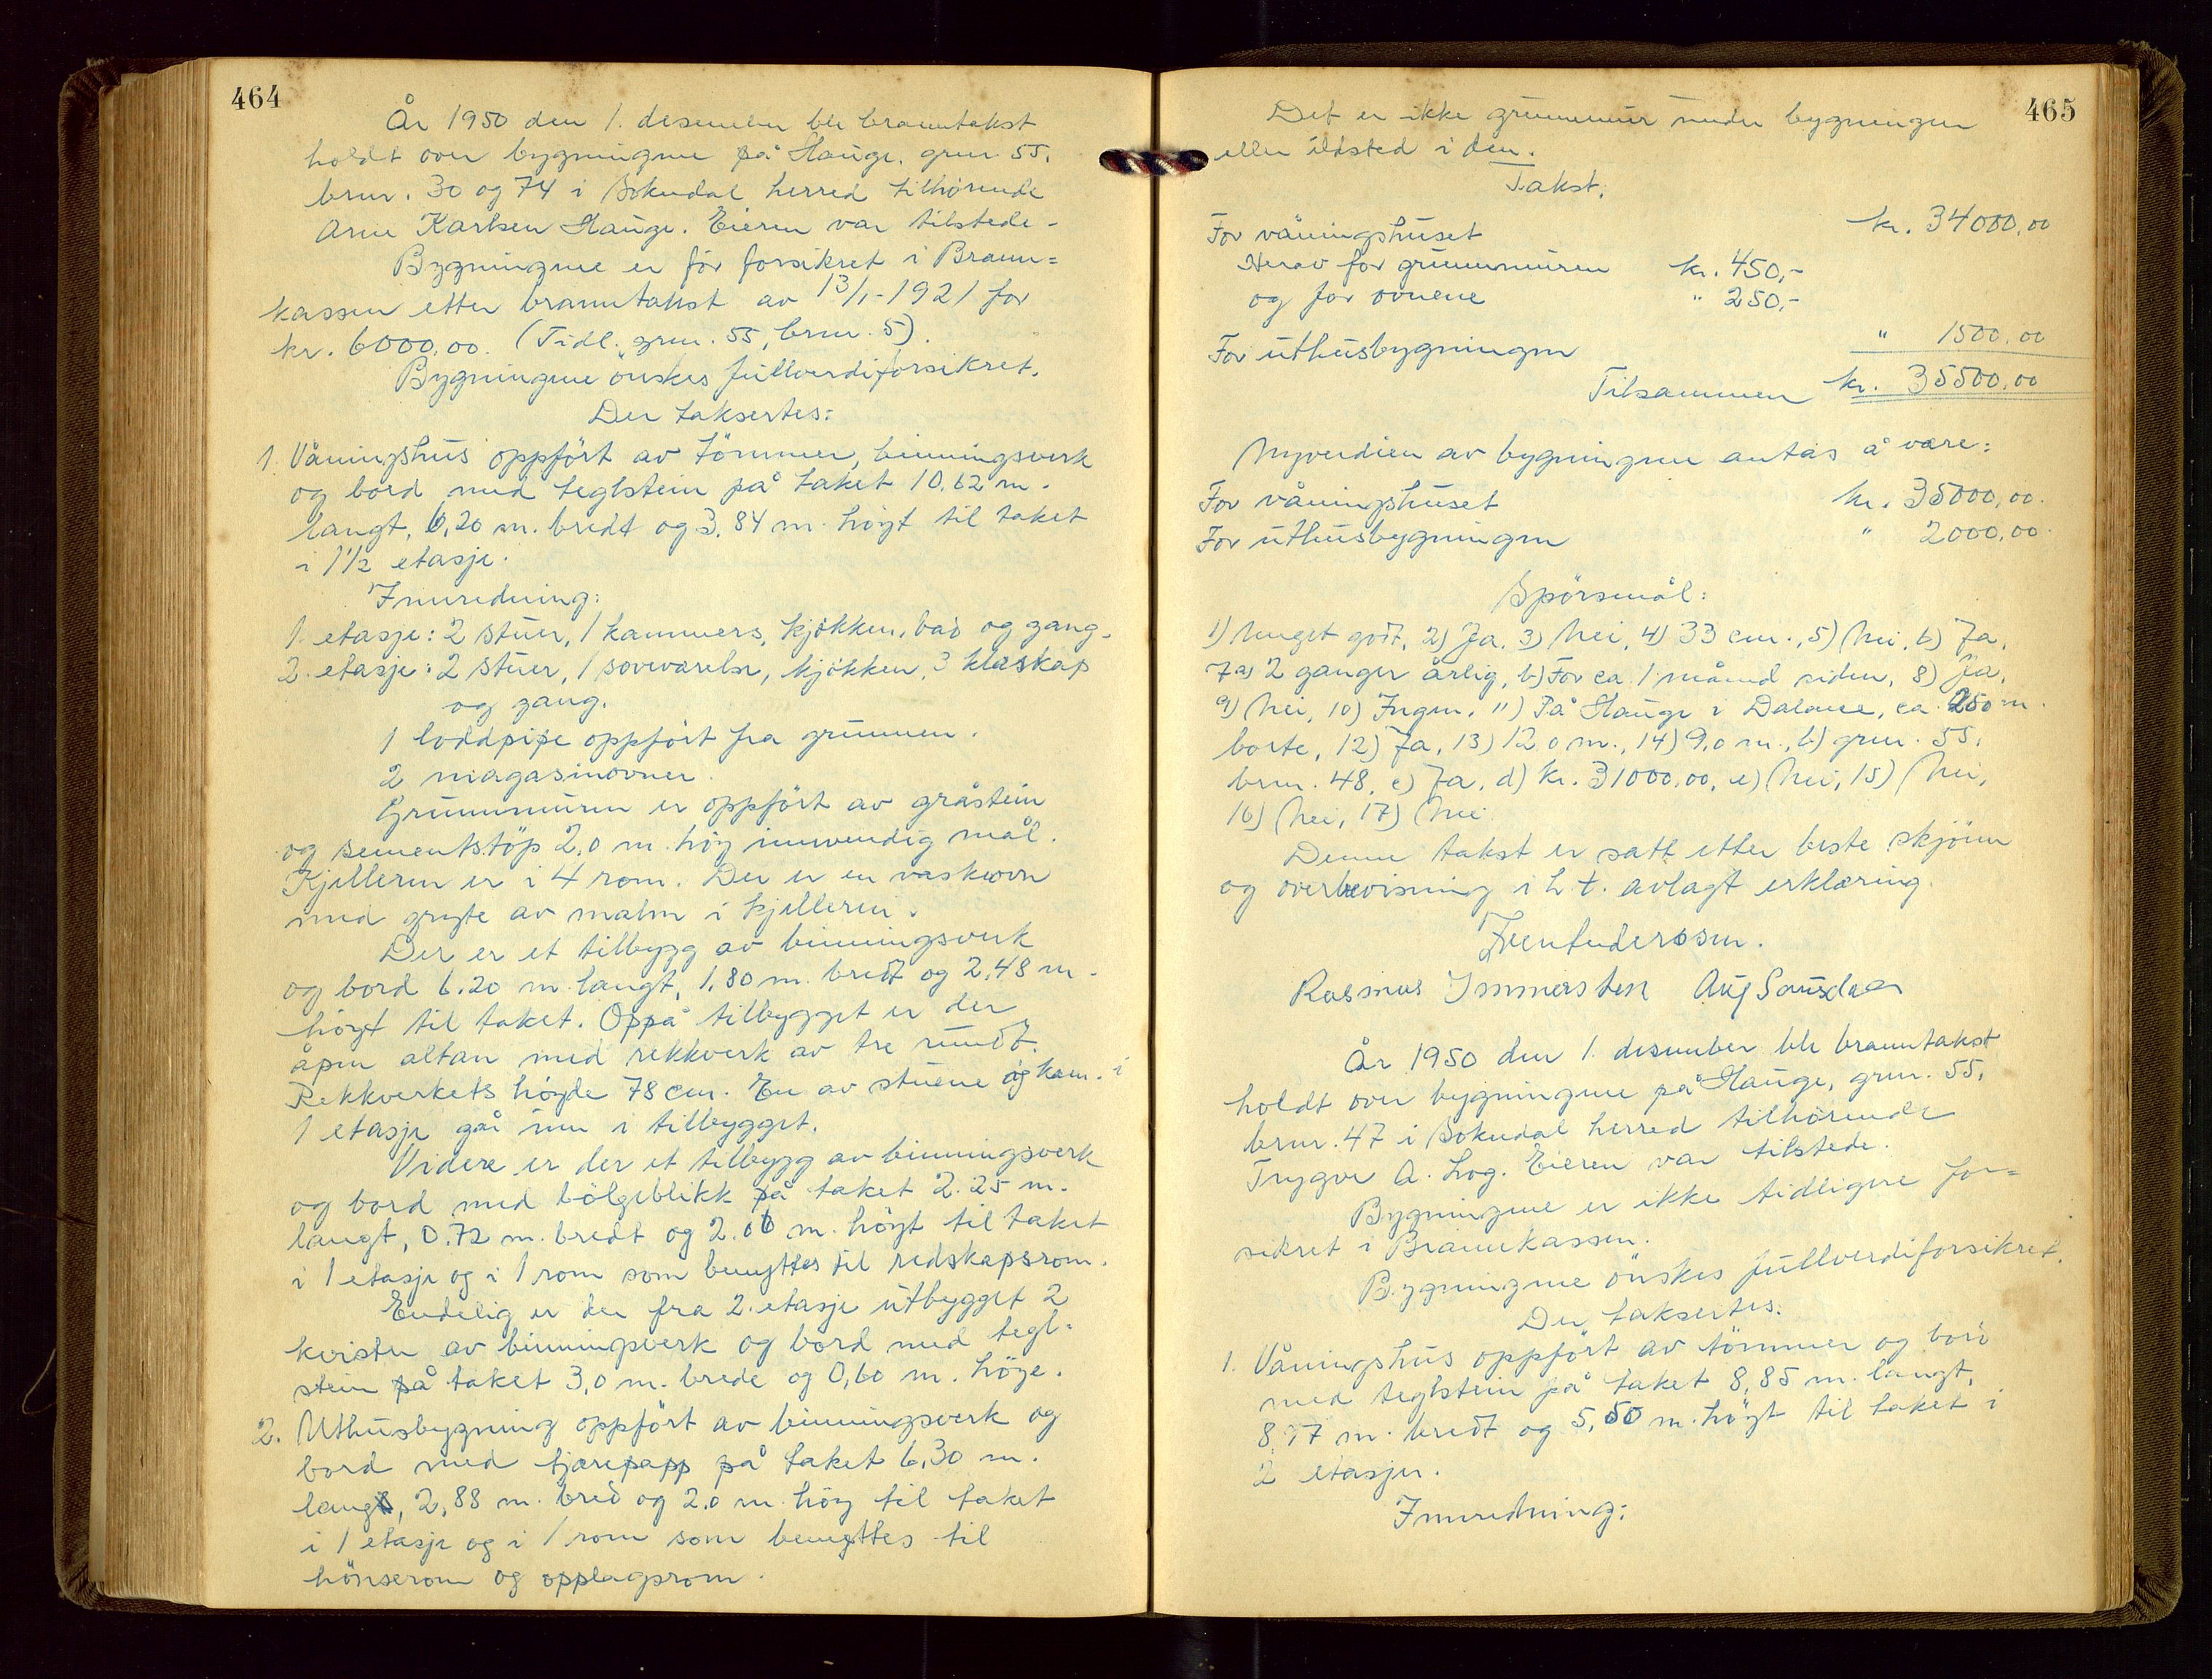 464
År 1950 den 1. desember ble branntakst
holdt over bygningene på Hauge, grnr. 55,
brnr. 30 og 74 i Sokndal herred tilhørende
Arne Karlsen Hauge. Eieren var tilstede.
Bygningene er før forsikret i Brann=
kassen etter branntakst av 13/1-1921 for
kr. 6000,00. (Tidl. grnr. 55, brnr. 5).
Bygningene ønskes fullverdiforsikret.
Der taksertes:
1. Våningshus oppført av tømmer, binningsverk
og bord med teglstein på taket 10.62 m.
langt, 6,20 m. bredt og 3,84 m. høyt til taket
i 1½ etasje.
Innredning:
1. etasje: 2 stuer, 1 kammers, kjøkken, bad og gang.
2. etasje: 2 stuer, 1 soveværelse, kjøkken, 3 kleskap
og gang.
1 loddpipe oppført fra grunnen.
2 magasinovner.
Grunnmuren er oppført av gråstein
og sementstøp 2,0 m. høy innvendig mål.
Kjelleren er i 4 rom. Der er en vaskeovn
med gryte av malm i kjelleren.
Der er et tilbygg av binningsverk
og bord 6.20 m. langt, 1,80 m. bredt og 2,48 m.
høyt til taket. Oppå tilbygget er der
åpen altan med rekkverk av tre rundt.
Rekkverkets høyde 78 cm. En av stuene og kam. i
1 etasje går inn i tilbygget.
Videre er der et tilbygg av binningsverk
og bord med bølgeblikk på taket 2.25 m.
langt, 0.72 m. bredt og 2.00 m. høyt til taket
i 1 etasje og i 1 rom som benyttes til redskapsrom.
Endelig er der fra 2. etasje utbygget 2
kvister av binningverk og bord med tegl-
stein på taket 3,0 m. brede og 0,60 m. høge.
2. Uthusbygning oppført av binningsverk og
bord med tjærepapp på taket 6,30 m.
lang, 2,88 m. bred og 2.0 m. høy til taket
i 1 etasje og i 1 rom som benyttes til
hønserom og opplagsrom.
465
Det er ikke grunnmur under bygningen
eller ildsted i den.
Takst:
For våningshuset kr. 34000,00
Herav for grunnmuren kr. 450,-
og for ovnene " 250,-
For uthusbygningen " 1500,00
Tilsammen kr. 35500,00
Nyverdien av bygningene antas å være:
For våningshuset kr. 35000,00.
For uthusbygningen " 2000,00.
Spørsmål:
1) Meget godt, 2) Ja, 3) Nei, 4) 33 cm., 5) Nei, 6) Ja,
7a) 2 ganger årlig, b) For ca. 1 måned siden, 8) Ja,
9) Nei, 10) Ingen, 11) På Hauge i Dalane, ca. 250 m.
borte, 12) Ja, 13) 12 0 m., 14) 9,0 m., b) grnr. 55,
brnr. 48, c) Ja, d) kr. 31000,00, e) Nei, 15) Nei,
16) Nei, 17) Nei.
Denne takst er satt etter beste skjønn
og overbevisning i h. t. avlagt erklæring.
Rasmus Immerstein Aug Sausdal
År 1950 den 1. desember ble branntakst
holdt over bygningene på Hauge, grnr. 55,
brnr. 47 i Sokndal herred tilhørende
Trygve A. Log. Eieren var tilstede.
Bygningene er ikke tidligere for=
sikret i Brannkassen.
Bygningene ønskes fullverdiforsikret.
Der taksertes:
1. Våningshus oppført av tømmer og bord
med teglstein på taket 8,85 m. langt,
8,17 m. bredt og 5,50 m. høyt til taket i
2 etasjer.
Innredning: